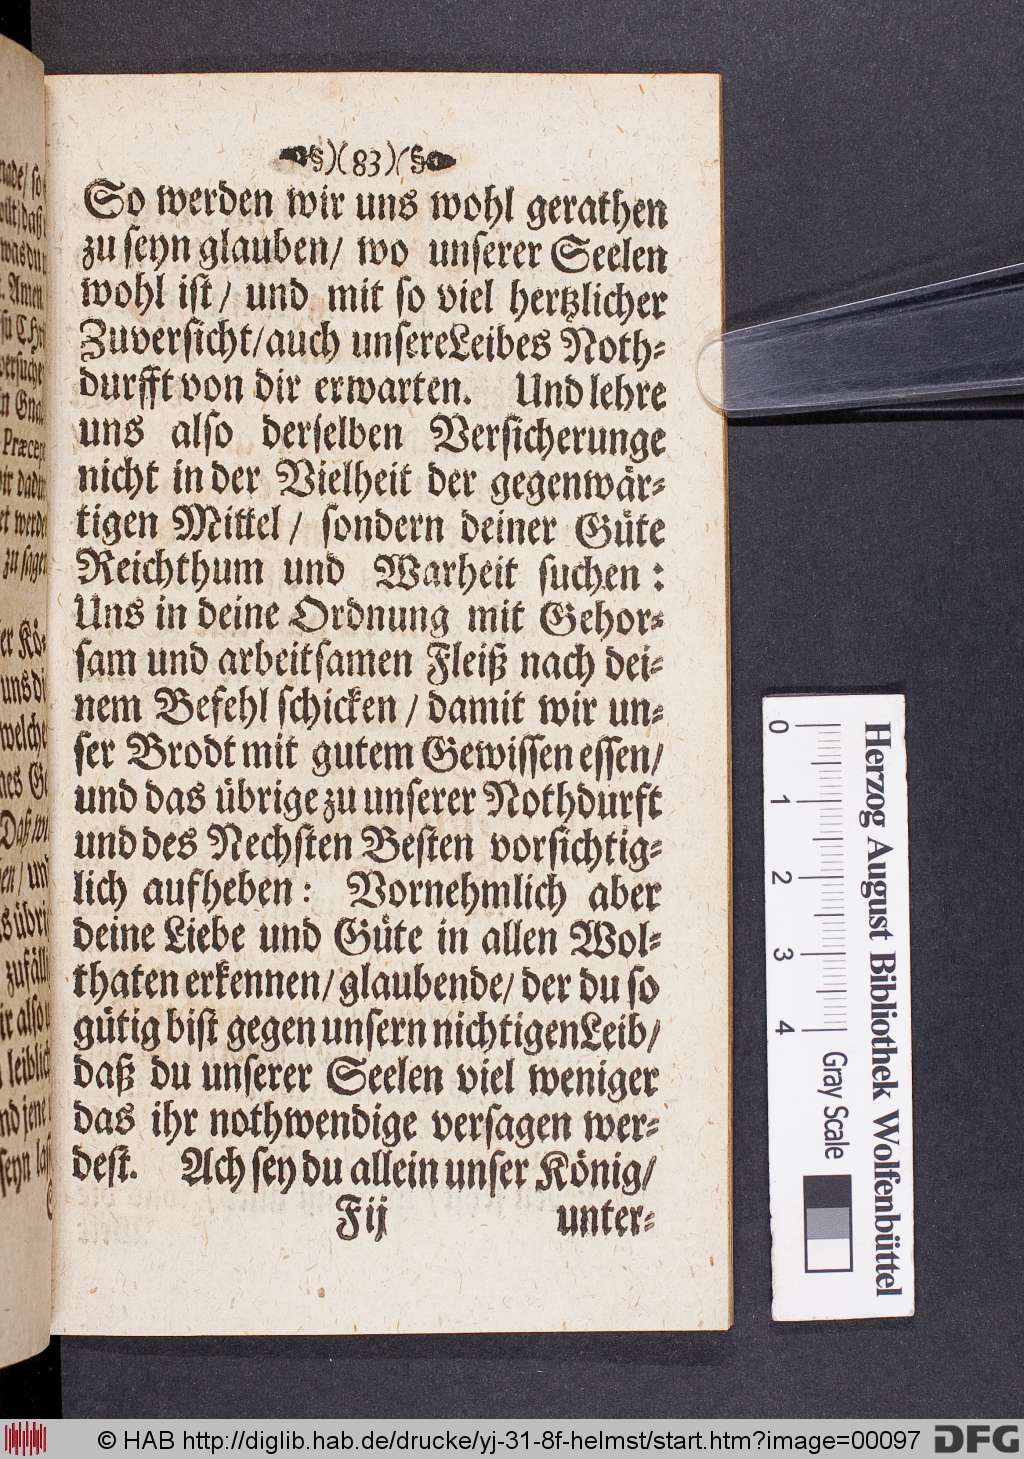 §)(83)(§
So werden wir uns wohl gerathen
zu seyn glauben/ wo unserer Seelen
wohl ist/ und mit so viel hertzlicher
Zuversicht/auch unsereLeibes Noth-
durfft von dir erwarten. Und lehre
uns also derselben Versicherunge
nicht in der Vielheit der gegenwär-
tigen Mittel/ sondern deiner Güte
Reichthum und Warheit suchen:
Uns in deine Ordnung mit Gehor-
sam und arbeitsamen Fleiß nach dei-
nem Befehl schicken/ damit wir un-
ser Brodt mit gutem Gewissen essen/
und das übrige zu unserer Nothdurft
und des Nechsten Besten vorsichtig-
lich aufheben: Vornehmlich aber
deine Liebe und Güte in allen Wol-
thaten erkennen/ glaubende/ der du so
gütig bist gegen unsern nichtigenLeib/
daß du unserer Seelen viel weniger
das ihr nothwendige versagen wer-
dest. Ach sey du allein unser König/
Fij unter-
0 1 2 3 4 Gray Scale
Herzog August Bibliothek Wolfenbüttel
© HAB http://diglib.hab.de/drucke/yj-31-8f-helmst/start.htm?image=00097 DFG